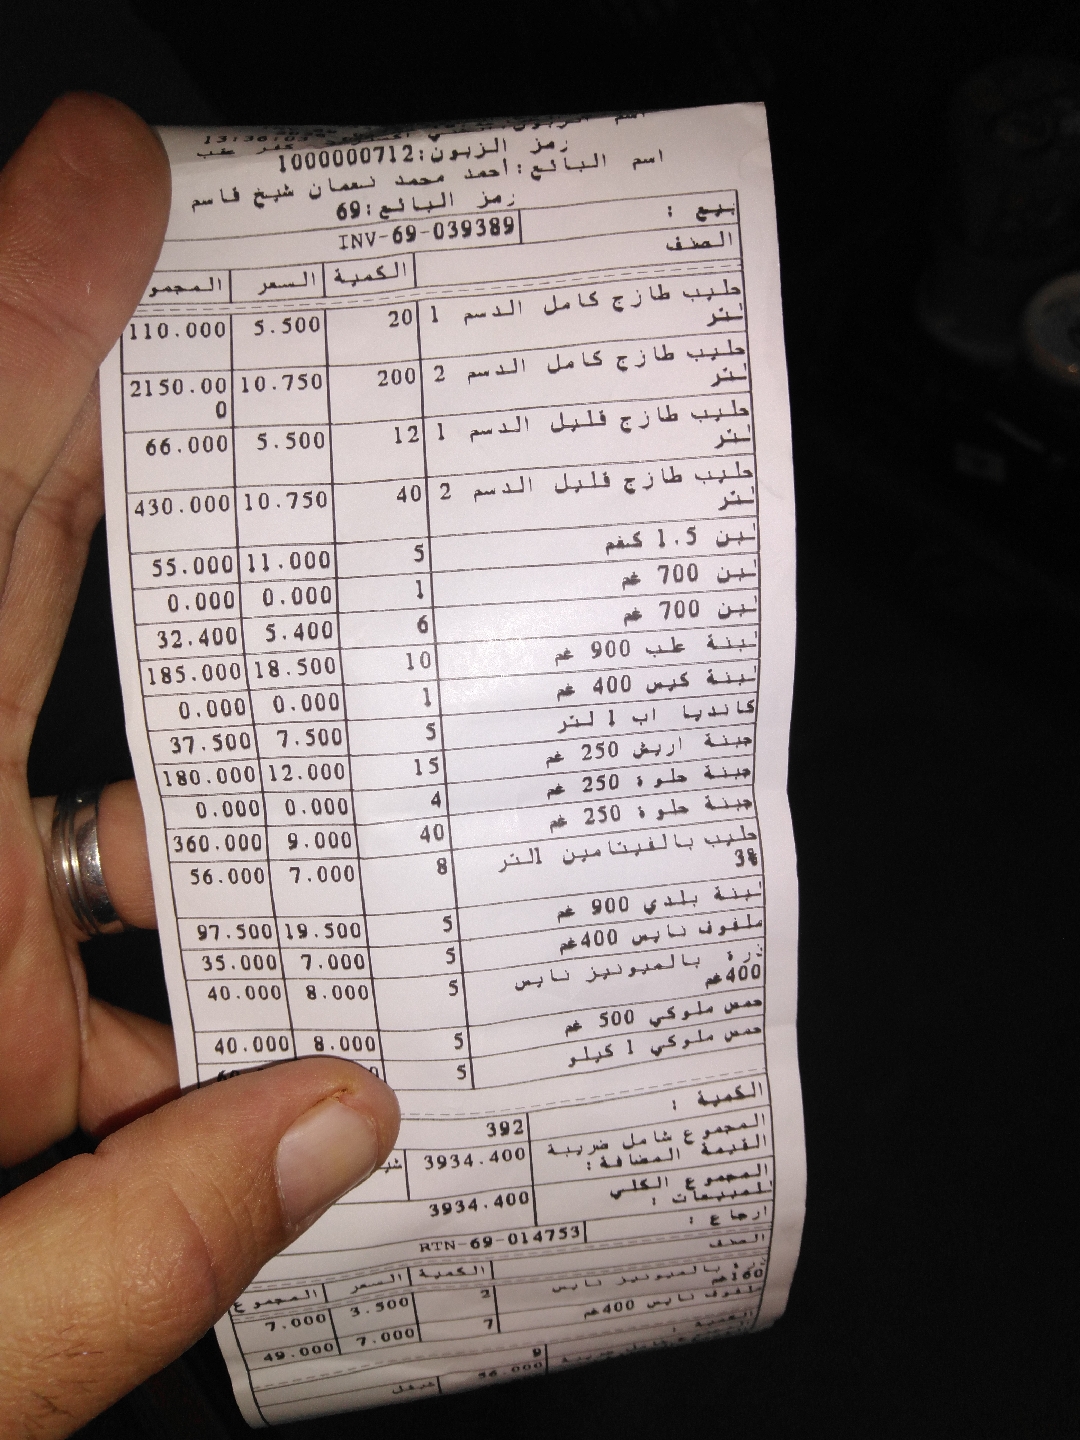 13:36:03
رمز الزبون:1000000712
اسم البائع:أحمد محمد نعمان شيخ قاسم
رمز البائع:69
بيع :
INV-69-039389
الصنف
الكمية السعر المجمو
حليب طازج كامل الدسم 1 20 5.500 110.000
لتر
حليب طازج كامل الدسم 2 200 10.750 2150.00
لتر 0
حليب طازج قليل الدسم 1 12 5.500 66.000
لتر
حليب طازج قليل الدسم 2 40 10.750 430.000
لتر
لبن 1.5 كغم 5 11.000 55.000
لبن 700 غم 1 0.000 0.000
لبن 700 غم 6 5.400 32.400
لبنة علب 900 غم 10 18.500 185.000
لبنة كيس 400 غم 1 0.000 0.000
كانديا اب 1 لتر 5 7.500 37.500
جبنة اريش 250 غم 15 12.000 180.000
جبنة حلوة 250 غم 4 0.000 0.000
جبنة حلوة 250 غم 40 9.000 360.000
حليب بالفيتامين 1لتر 8 7.000 56.000
3%
لبنة بلدي 900 غم 5 19.500 97.500
ملفوف نايس 400غم 5 7.000 35.000
ذرة بالميونيز نايس 5 8.000 40.000
400غم
حمص ملوكي 500 غم 5 8.000 40.000
حمص ملوكي 1 كيلو 5
الكمية :
392
المجموع شامل ضريبة 3934.400
القيمة المضافة :
المجموع الكلي 3934.400
للمبيعات :
ارجاع :
RTN-69-014753
الصنف
الكمية السعر المجموع
ذرة بالميونيز نايس 2 3.500 7.000
160غم
ملفوف نايس 400غم 7 7.000 49.000
الكمية :
9
56.000 شيقل